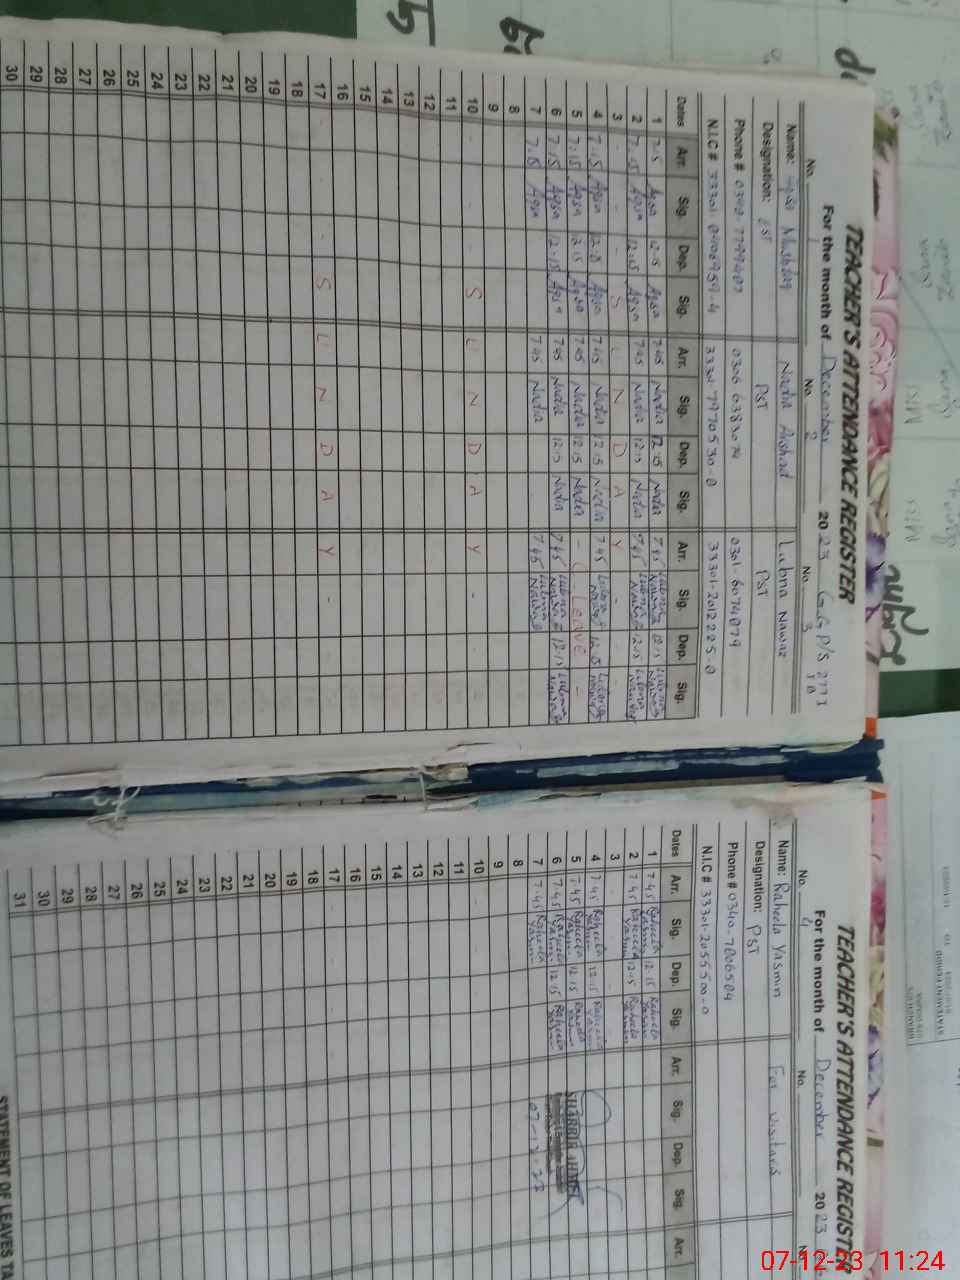 TEACHER'S ATTENDANCE REGISTER
For the month of December 2023 G.G P/S 277 J B
No. 1 No. 2 No. 3
Name: Aqsa Mushtaq Nadia Arshad Lubna Nawaz
Designation: PST PST PST
Phone # 0306 6383074 0301-6074079
N.I.C # 33301-7970530-0 33301-2012225-0
Dates Arr. Sig. Dep. Sig. Arr. Sig. Dep. Sig. Arr. Sig. Dep. Sig.
1 7.15 Aqsa 12.15 Aqsa 7.45 Nadia 12.15 Nadia 7.45 Lubna Nawaz 12.15 Lubna Nawaz
2 7.15 Aqsa 12.15 Aqsa 7.45 Nadia 12.15 Nadia 7.45 Lubna Nawaz 12.15 Lubna Nawaz
3 - - - S U N D A Y - - -
4 7.15 Aqsa 12.15 Aqsa 7.45 Nadia 12.15 Nadia 7.45 Lubna Nawaz 12.15 Lubna Nawaz
5 7.15 Aqsa 12.15 Aqsa 7.45 Nadia 12.15 Nadia - LEAVE -
6 7.15 Aqsa 12.15 Aqsa 7.45 Nadia 12.15 Nadia 7.45 Lubna Nawaz 12.15 Lubna Nawaz
7 7.15 Aqsa 7.45 Nadia 7.45 Lubna Nawaz
8
9
10 - - - S U N D A Y -
11
12
13
14
15
16
17 - - - S U N D A Y -
18
19
20
21
22
23
24
25
26
27
28
29
30
TEACHER'S ATTENDANCE REGISTER
For the month of December 2023
No. 4 No. No.
Name: Raheela Yasmin For visitors
Designation: PST
Phone # 0340-7006504
N.I.C # 33301-2055500-0
Dates Arr. Sig. Dep. Sig. Arr. Sig. Dep. Sig. Arr.
1 7.45 Raheela Yasmin 12.15 Raheela Yasmin
2 7.45 Raheela Yasmin 12.15 Raheela Yasmin
3
4 7.45 Raheela Yasmin 12.15 Raheela Yasmin
5 7.45 Raheela Yasmin 12.15 Raheela Yasmin
6 7.45 Raheela Yasmin 12.15 Raheela Yasmin
7 7.45 Raheela Yasmin 07-12-23
8
9
10
11
12
13
14
15
16
17
18
19
20
21
22
23
24
25
26
27
28
29
30
31
STATEMENT OF LEAVES TA
07-12-23 11:24